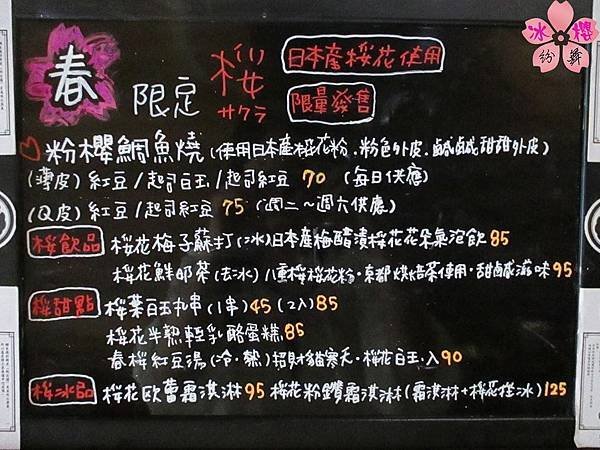 冰櫻
紛舞
春 限定 桜 サクラ
日本産桜花使用
限量發售
粉櫻鯛魚燒(使用日本産桜花粉.粉色外皮.鹹鹹甜甜外皮)
(薄皮)紅豆/起司白玉/起司紅豆 70 (每日供應)
(Q皮)紅豆/起司紅豆 75 (週二~週六供應)
桜飲品 桜花梅子蘇打(冰)日本産梅醋漬桜花花朵氣泡飲 85
桜花鮮奶茶(去冰)八重桜桜花粉.京都烘焙茶使用.甜鹹滋味 95
桜甜點 桜葉白玉丸串(1串)45 (2入)85
桜花半熟輕乳酪蛋糕 85
春桜紅豆湯(冷.熱)招財貓寒天.桜花白玉.入 90
桜冰品 桜花歐蕾霜淇淋 95 桜花粉鑽霜淇淋(霜淇淋+桜花挫冰)125